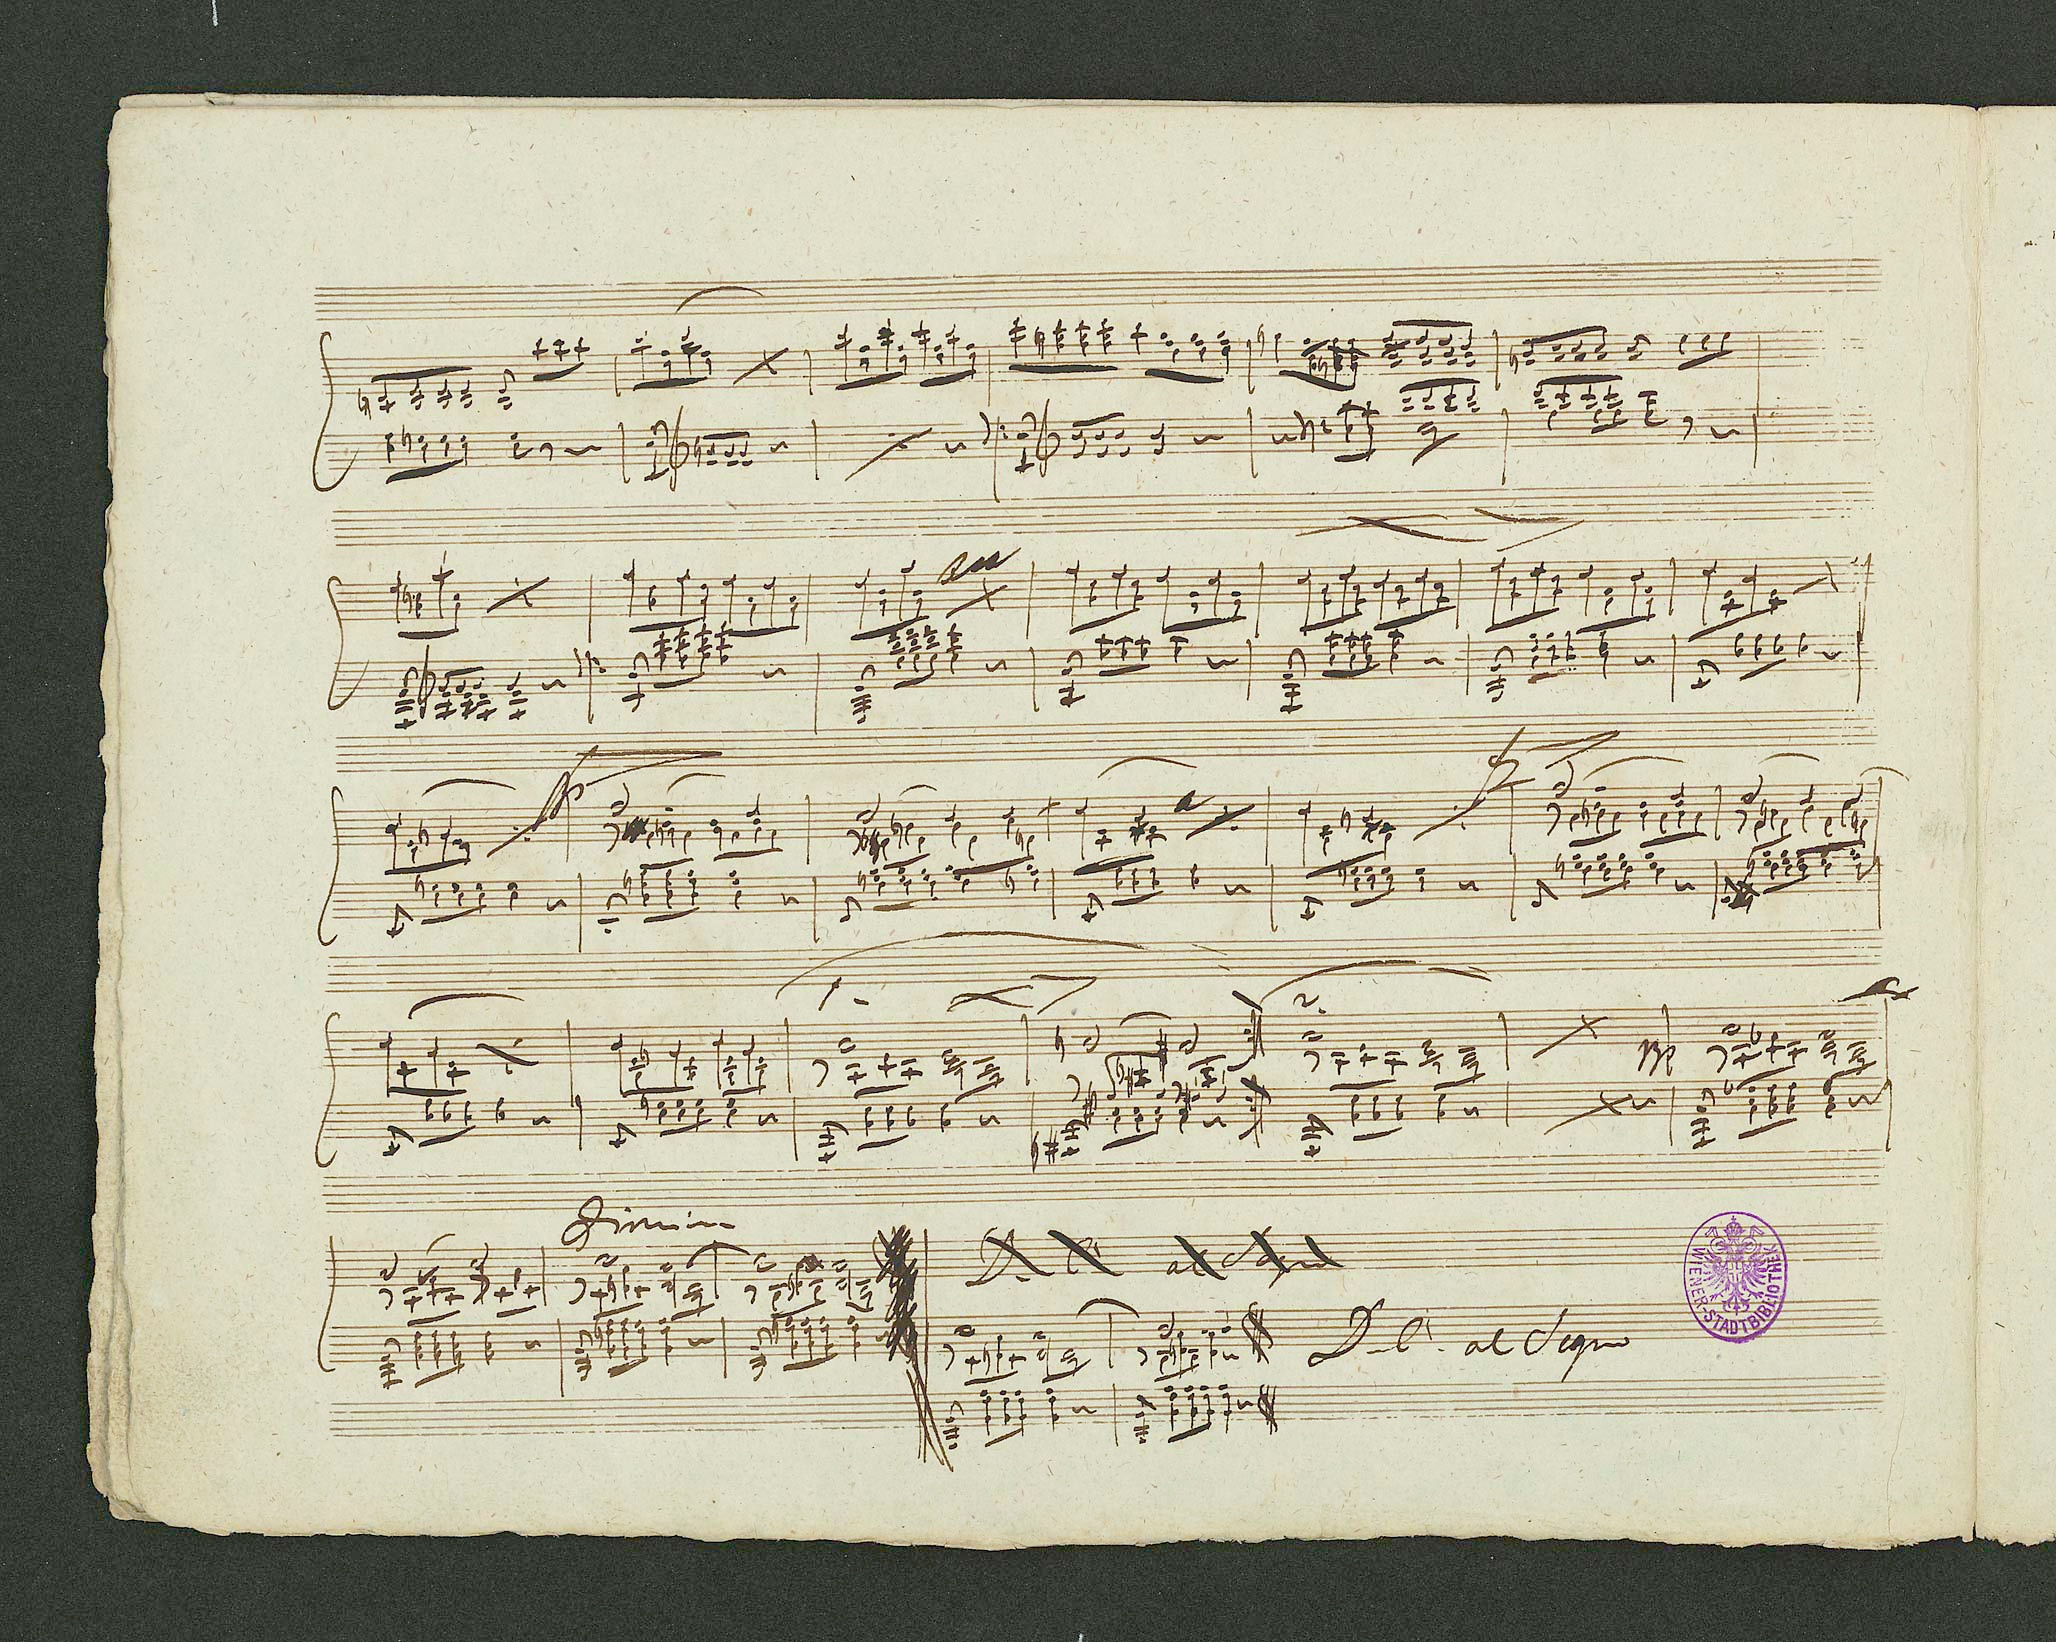 1.
2.
Dimin
D. C. al Segno
D. C. al Segno
WIENER-STADTBIBLIOTHEK